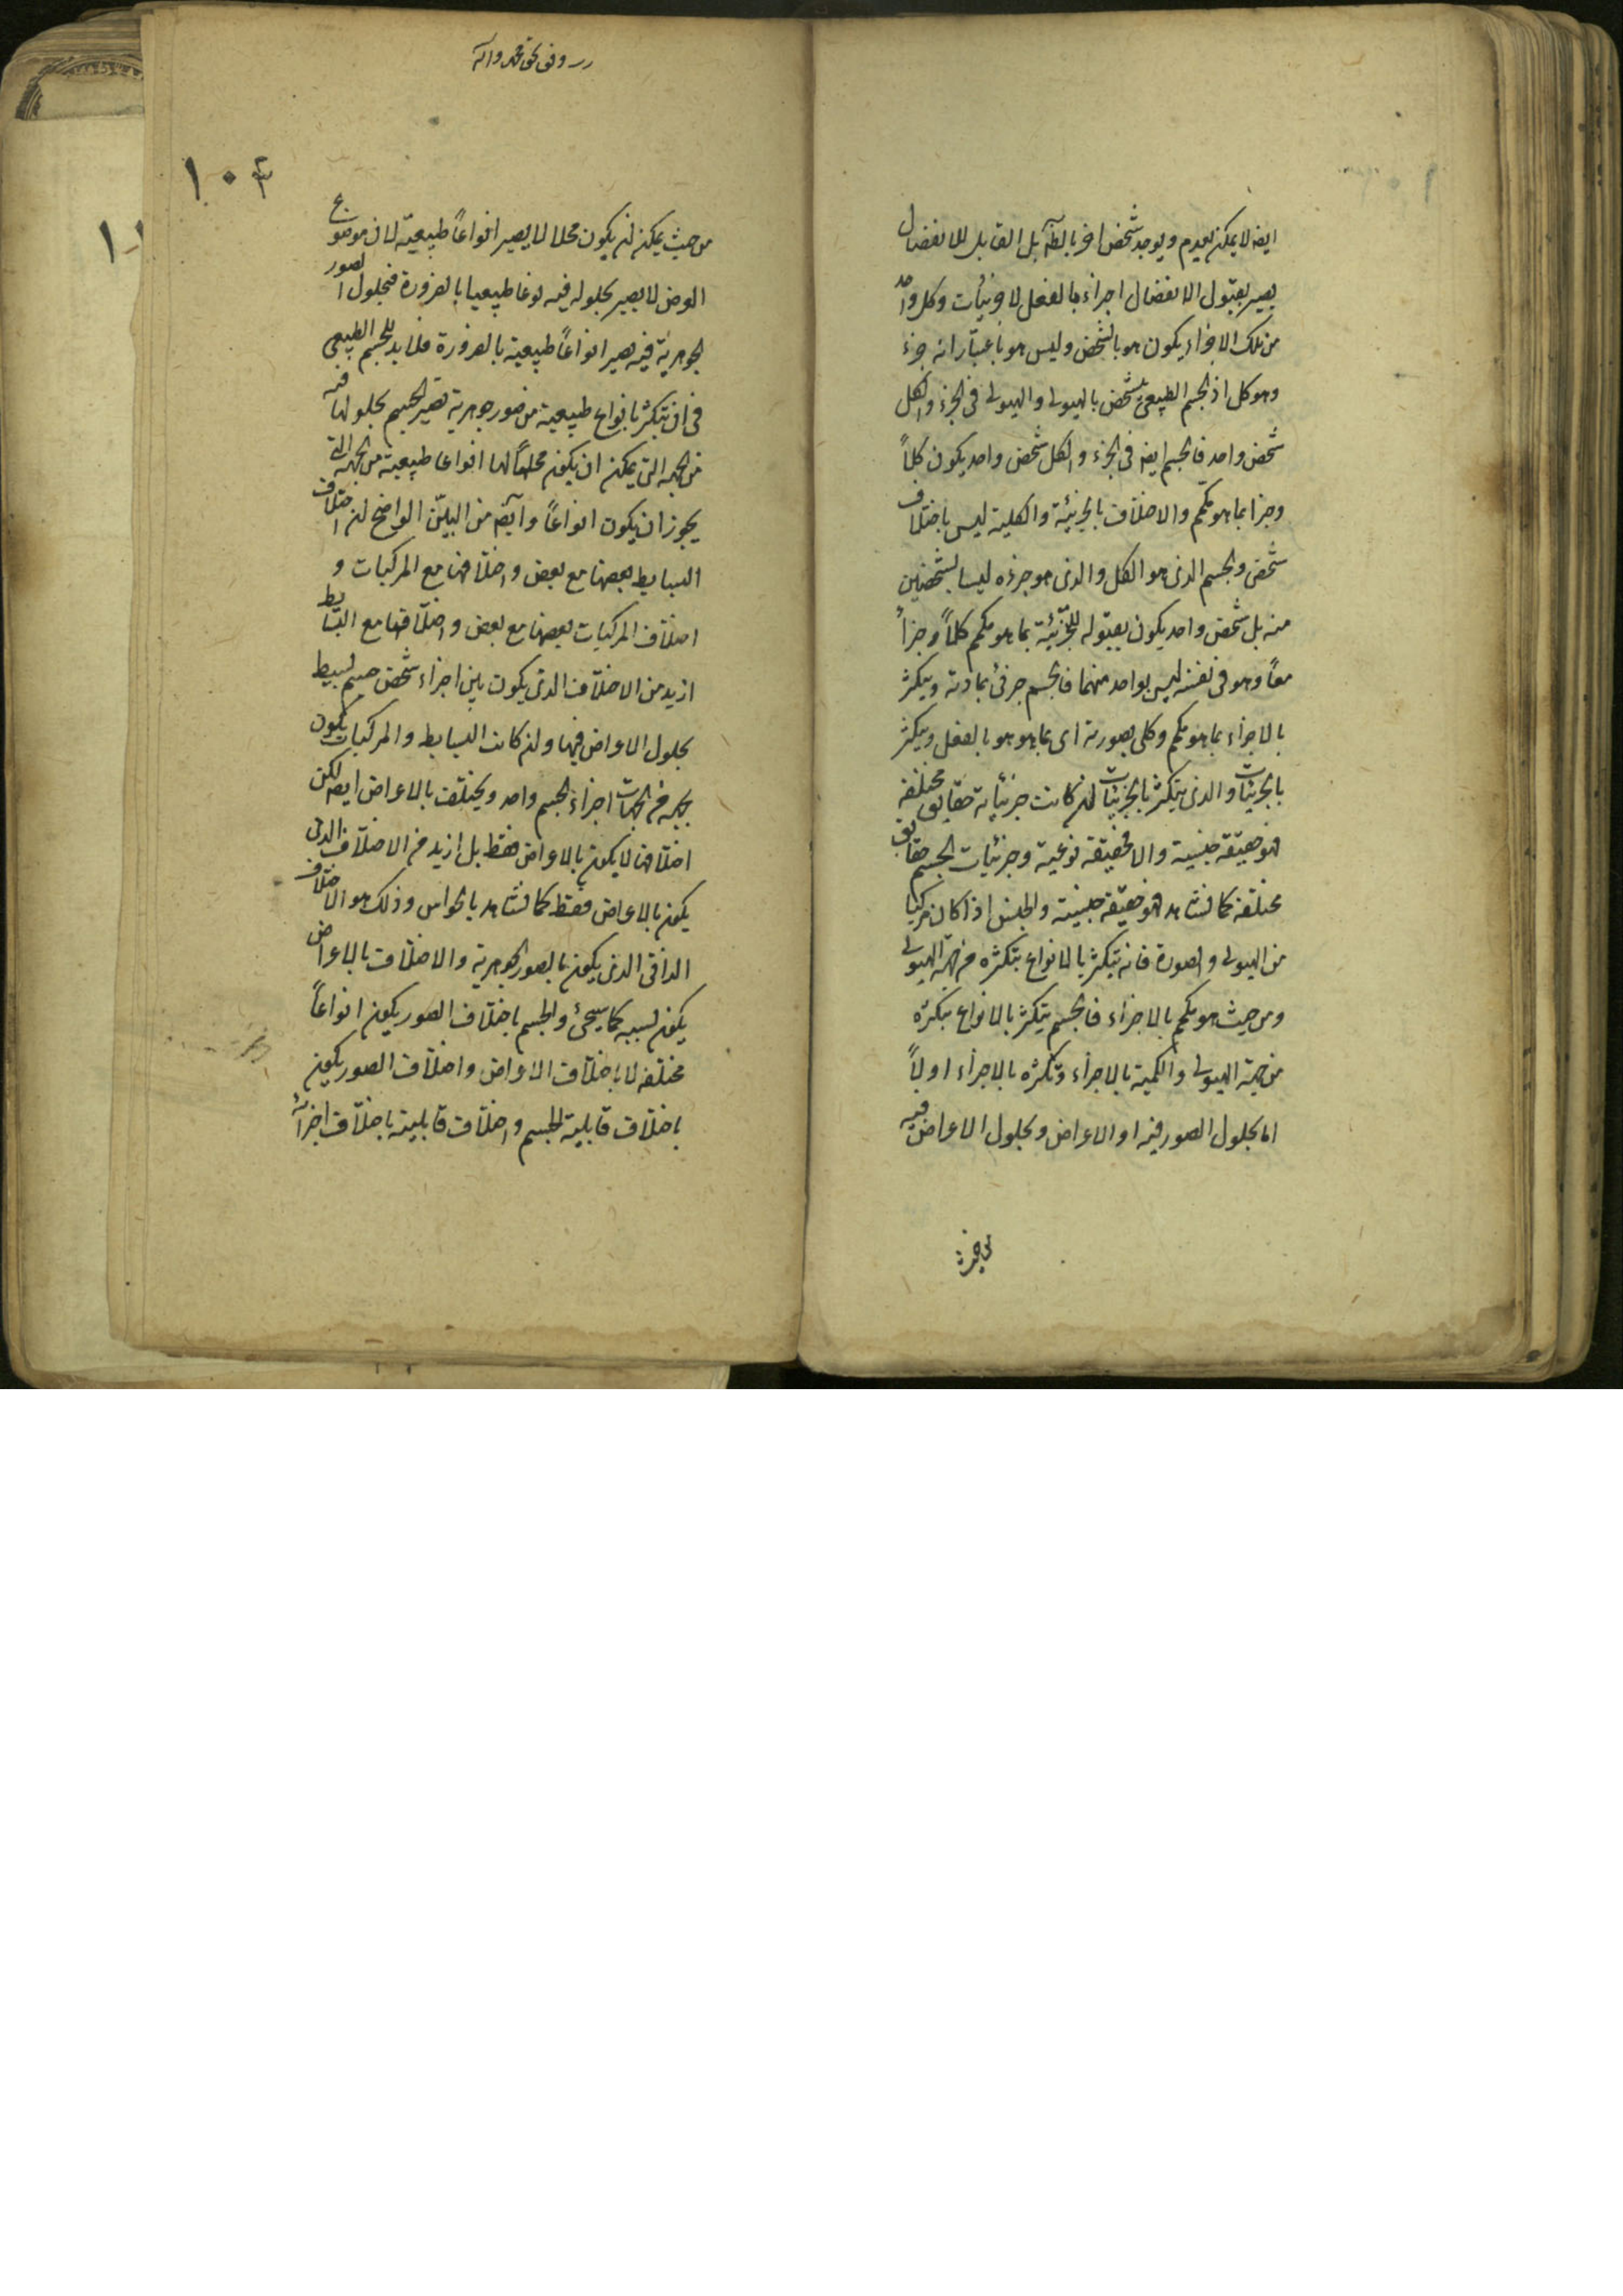 ايضه لا يمكن لعدم ويوجد شخص اخر بالطه بل القابل للانفصال
يصير بقبول الانفصال اجزاء بالفعل لا جزئيات وكل واحد
من تلك الاجزاء يكون هو بالشخص وليس هو باعتبار انه جزء
وهو كل اذ الجسم الطبيعى يتشخص بالهيولى والهيولى فى الجزء والكل
شخص واحد فالجسم ايضه فى الجزء والكل شخص واحد يكون كلاً
وجزا بما هو متكمم والاختلاف بالجزئية والكلية ليس باختلاف
شخص والجسم الذى هو الكل والذى هو جزءه ليسا بشخصين
منه بل شخص واحد يكون بقبوله للتجزئة بما هو متكمم كلاً وجزاً
معاً وهو فى نفسه ليس بواحد منهما فالجسم جزئى بمادته ويتكثر
بالاجزاء بما هو متكمم وكلى بصورته اى بما هو هو بالفعل ويتكثر
بالجزئيات والذى يتكثر بالجزئيات ان كانت جزئياته حقايق مختلفة
فهو حقيقة جنسية والا فحقيقة نوعية وجزئيات الجسم حقايق
مختلفة كما نشاهد فهو حقيقة جنسية والجنس اذا كان مركبا
من الهيولى والصورة فانه يتكثر بالانواع بتكثره من جهة الهيولى
ومن حيث هو متكمم بالاجزاء فالجسم يتكثر بالانواع بتكثره
من جهة الهيولى والكمية بالاجزاء وتكثره بالاجزاء اولاً
اما بحلول الصور فيه او الاعراض وبحلول الاعراض فيه
١٠٤
من حيث يمكن ان يكون محلا لا يصير انواعاً طبيعية لان موضوع
العرض لا يصير بحلوله فيه نوعا طبيعيا بالضرورة فبحلول الصور
الجوهرية فيه يصير انواعاً طبيعية بالضرورة فلا بد للجسم الطبيعى
فى ان يتكثر بانواع طبيعية من صور جوهرية تصير الجسم بحلولها فيه
من الجهة التى يمكن ان يكون محلاً لها انواعا طبيعية من الجهة التى
يجوز ان يكون انواعاً وايضه من البيّن الواضح ان اختلاف
البسايط بعضها مع بعض واختلافها مع المركبات و
اختلاف المركبات بعضها مع بعض واختلافها مع البسايط
ازيد من الاختلاف الذى يكون بين اجزاء شخص جسم بسيط
بحلول الاعراض فيها وان كانت البسايط والمركبات يكون
بجهة من الجهات اجزاء لجسم واحد ويختلف بالاعراض ايضه لكن
اختلافها لا يكون بالاعراض فقط بل ازيد من الاختلاف الذى
يكون بالاعراض فقط كما نشاهد بالحواس وذلك هو الاختلاف
الذاتى الذى يكون بالصور الجوهرية والاختلاف بالاعراض
يكون بسببه كما سيجئ والجسم باختلاف الصور يكون انواعاً
مختلفه لا باختلاف الاعراض واختلاف الصور يكون
باختلاف قابلية الجسم واختلاف قابليته باختلاف اجزائه